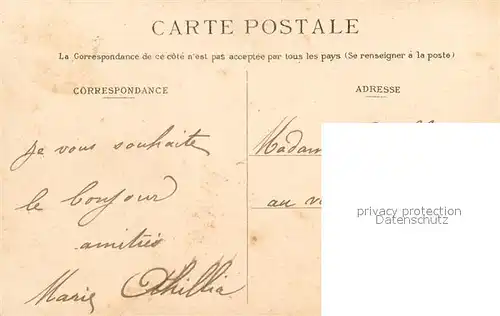 CARTE POSTALE
La Correspondance de ce côté n'est pas acceptée par tous les pays (Se renseigner à la poste)
CORRESPONDANCE
je vous souhaite
le bonjour
amitiés
Marie
ADRESSE
Madam
au
privacy protection
(Datenschutz)